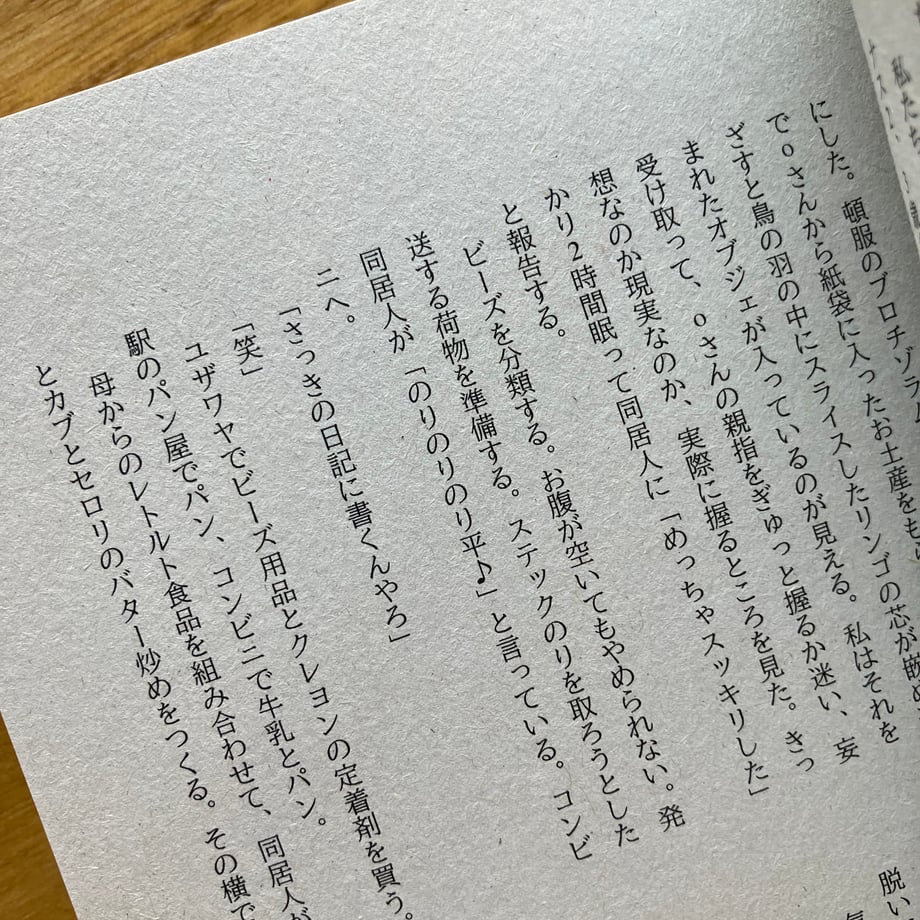 にした。頓服のブロチゾラー
でoさんから紙袋に入ったお土産をもら
ざすと鳥の羽の中にスライスしたリンゴの芯が嵌め
まれたオブジェが入っているのが見える。私はそれを
受け取って、oさんの親指をぎゅっと握るか迷い、妄
想なのか現実なのか、実際に握るところを見た。きっ
かり2時間眠って同居人に「めっちゃスッキリした」
と報告する。
ビーズを分類する。お腹が空いてもやめられない。発
送する荷物を準備する。ステックのりを取ろうとした
同居人が「のりのりのり平♪」と言っている。コンビ
ニへ。
「さっきの日記に書くんやろ」
「笑」
ユザワヤでビーズ用品とクレヨンの定着剤を買う。
駅のパン屋でパン、コンビニで牛乳とパン。
母からのレトルト食品を組み合わせて、同居人が
とカブとセロリのバター炒めをつくる。その横で
脱い